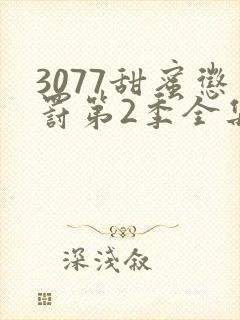 3077甜蜜惩
罚第2季全集
深淺叙